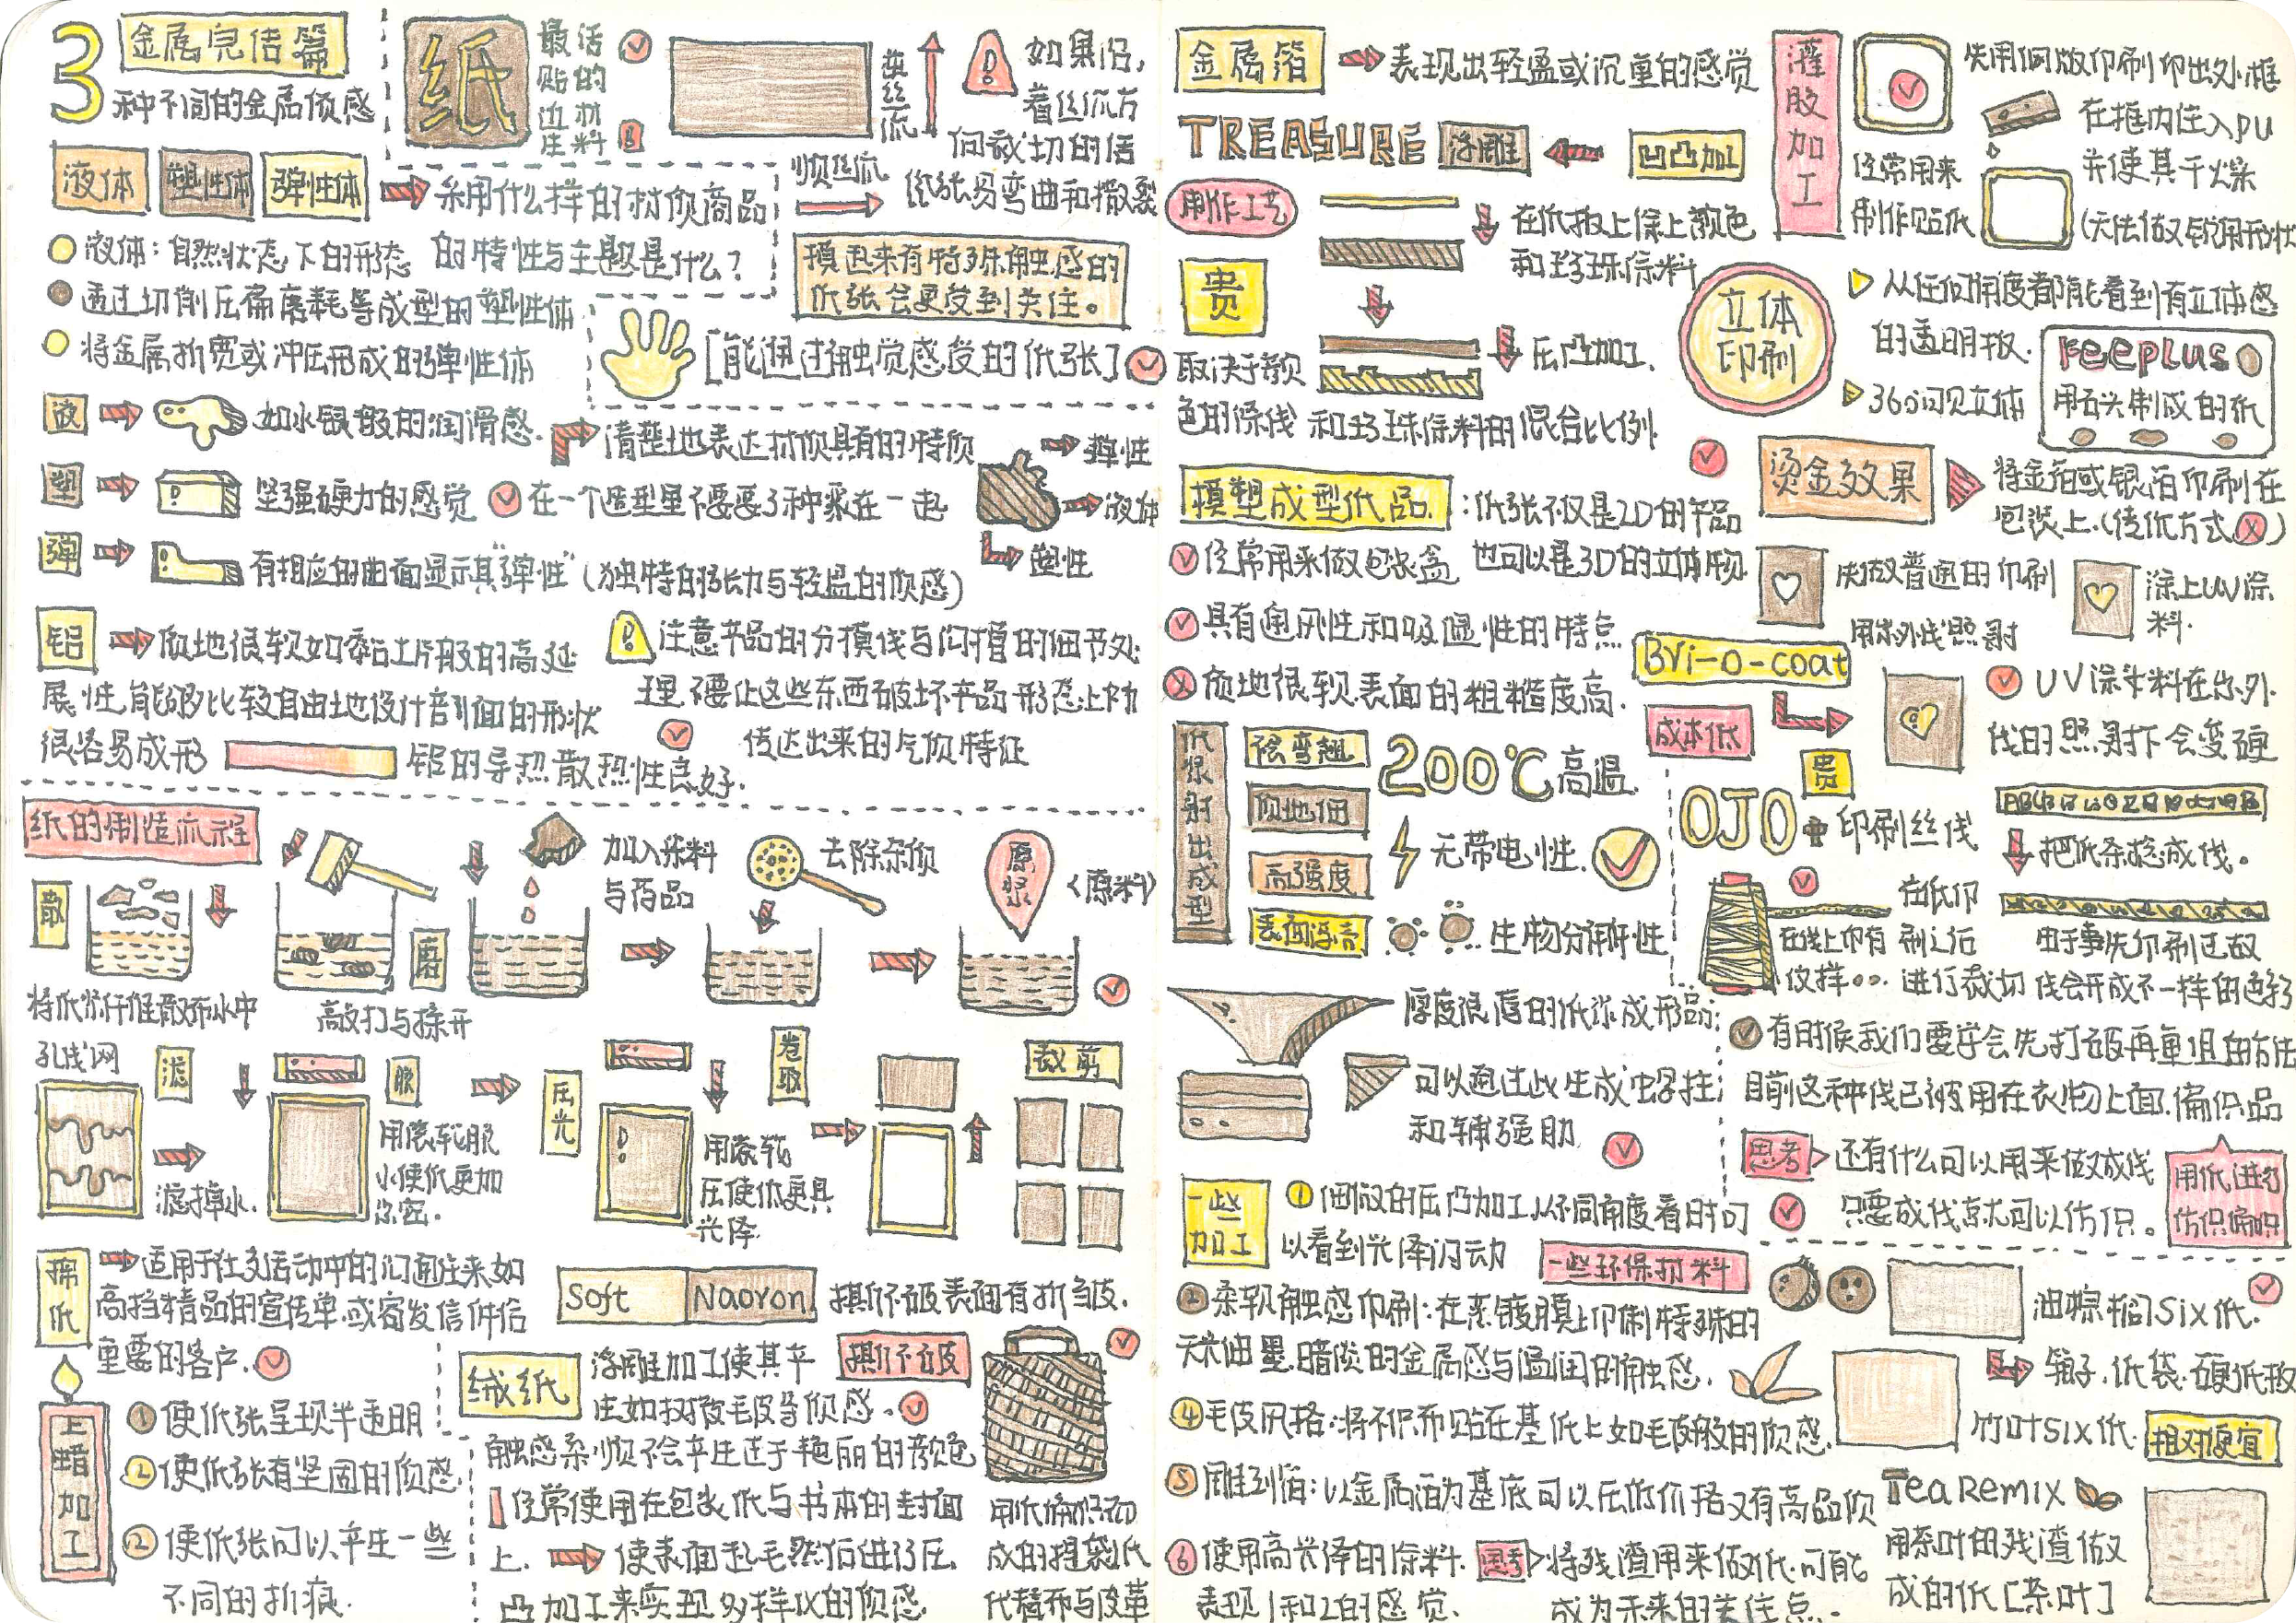 3
金属完结篇
种不同的金属质感
液体 塑性体 弹性体
采用什么样的材质商品
的特性与主题是什么?
液体:自然状态下的形态
透过切削压扁磨耗等成型的塑性体
将金属折弯或冲压形成的弹性体
液
如水银般的润滑感.
塑
坚强硬力的感觉
弹
有相应的曲面显示其"弹性"(独特的张力与轻盈的质感)
清楚地表达材质具有的特质
在一个造型里不要要3种乘在一起
弹性
液体
塑性
铝
质地很软如黏土片般的高延
展性,能够比较自由地设计剖面的形状
很容易成形
铝的导热散热性良好.
注意产品的分模线与
的细节处
理,不要让这些东西破坏产品形态上所
传达出来的气质特征
纸
最活
贴的
边材
庄料
逆丝流
顺丝流
如果沿,
着丝流方
向裁切的话
纸张易弯曲和撕裂
摸起来有特殊触感的
纸张会更受到关注。
[能通过触觉感受的纸张]
纸的制造流程
散
将纸浆纤维散布水中
磨
敲打与揉开
加入染料
与药品
去除杂质
原浆
(原料)
孔线网
滤
滤掉水.
脱
用滚轮脱
水使纸更加
浓密.
压光
用滚轮
压使纸更具
光泽.
卷取
裁剪
棉纸
适用于社交活动中的
高档精品的宣传单.或寄发信件给
重要的客户.
上蜡加工
① 使纸张呈现半透明
② 使纸张有坚固的质感.
② 使纸张可以产生一些
不同的折痕.
Soft Naoron
撕不破表面有折皱皮.
绒纸
浮雕加工使其产
生如
毛皮等质感.
撕不破
触感柔顺不会产生过于艳丽的颜色
经常使用在包装纸与书本的封面
上.
使表面起毛然后进行压
凸加工来实现多样化的质感.
用纸编织而
成的提袋纸
代替布与皮革
金属箔
表现出轻盈或沉重的感觉
TREASURE
浮雕
凹凸加工
制作工艺
在纸板上涂上颜色
和珍珠涂料
压凸加工.
贵
取决于颜
色的涂线 和珍珠涂料的混合比例.
模塑成型纸品
:纸张不仅是2D的产品
也可以是3D的立体物.
经常用来做包装盒
具有通风性和吸湿性的特点
质地很软.表面的粗糙度高.
纸浆射出成型
轻弯翘
质地细
高强度
200℃高温.
无带电性.
生物分解性
厚度很薄的纸浆成形品;
可以通过此生成中空柱;
和辅强肋
一些加工
① 细微的压凸加工从不同角度看时可
以看到光泽闪动
② 柔软触感印刷:在蒸镀膜上印制特殊的
无光油墨.暗淡的金属感与温润的触感.
④ 毛皮风格:将不织布贴在基纸上如毛皮般的质感.
⑤ 雕刻箔:以金属箔为基底可以压低价格又有高品质
⑥ 使用高光泽的涂料.
表现1和2的感觉.
思考
将残渣用来做纸.可能
成为未来的关注点.
灌胶加工
先用网版印刷印出外框
在框内注入PU
并使其干燥
(无法做又锐用形状
经常用来
制作贴纸
立体印刷
从任何角度都能看到有立体感
的透明板.
360°可见立体
Keeplus
用石头制成的纸
烫金效果
将金箔或银箔印刷在
包装上.(传纸方式)
先做普通的印刷
涂上UV涂
料.
用紫外线照射
Bri-o-coat
成本低
UV涂料在紫外
线的照射下会变硬
贵
OJO
印刷丝线
把纸条捻成线。
在线上印有
仪样..
在纸印
刷之后
进行裁切
由于事先印刷过故
线会形成不一样的色彩
有时候我们要学会先打破再重组的方法
目前这种线已被用在衣物上面.编织品
思考
还有什么可以用来做成线
只要成线就可以仿织。
用纸进行
仿织编织
一些环保材料
油棕榈Six纸.
箱子.纸袋.硬纸板
竹叶SIX纸.
相对便宜
Tea Remix
用茶叶的残渣做
成的纸[茶叶]